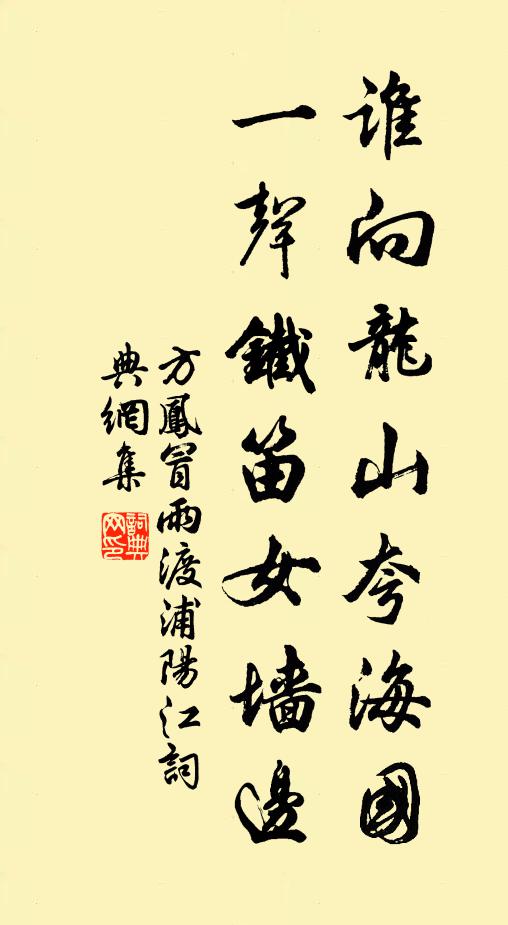 谁向龍山夸海國
一聲鐵笛女墻邊
方鳳冒雨渡浦陽江詞
典網集
詞典網印